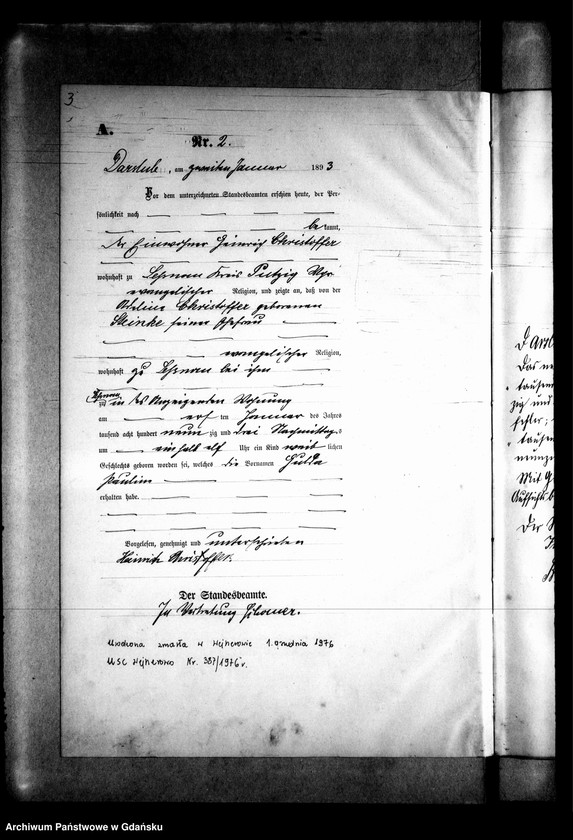 3
A.
Nr. 2.
Darslub, am zweiten Januar 1893
Vor dem unterzeichneten Standesbeamten erschien heute, der Per-
sönlichkeit nach
be kannt,
der Einwohner Heinrich Christoffer
wohnhaft zu Lessnau Kreis Putzig Wpr
evangelischer Religion, und zeigte an, daß von der
Adeline Christoffer geborenen
Steinke seiner Ehefrau
evangelischer Religion,
wohnhaft zu Lessnau bei ihm
zu Lessnau in des Anzeigenden Wohnung
am ersten Januar des Jahres
tausend acht hundert neun zig und drei Nachmittags
um einhalb elf Uhr ein Kind weib lichen
Geschlechts geboren worden sei, welches die Vornamen Hulda
Pauline
erhalten habe.
Vorgelesen, genehmigt und unterschrieben
Heinrich Christoffer
Der Standesbeamte.
In Vertretung
Urodzona zmarła w Wejherowie 1. grudnia 1976
USC Wejherowo Nr. 387/1976r.
Darsl
Das ne
tausen
zig und
tausen
Mit
Der S
Archiwum Państwowe w Gdańsku